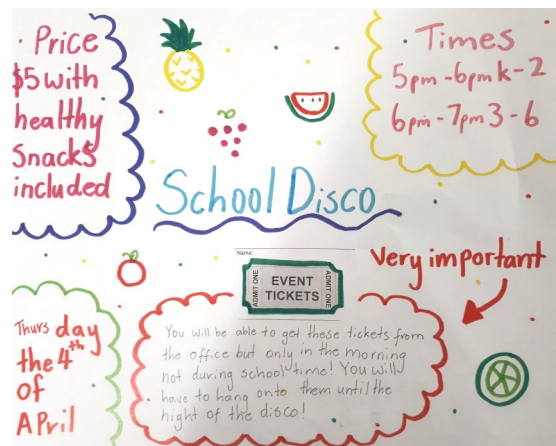 Price
$5 with
healthy
snacks
included
Times
5pm - 6pm K - 2
6pm - 7pm 3 - 6
School Disco
Name:
ADMIT ONE
EVENT
TICKETS
ADMIT ONE
Very important
Thursday
the 4th
of
April
You will be able to get these tickets from
the office but only in the morning
not during school time! You will
have to hang onto them until the
night of the disco!